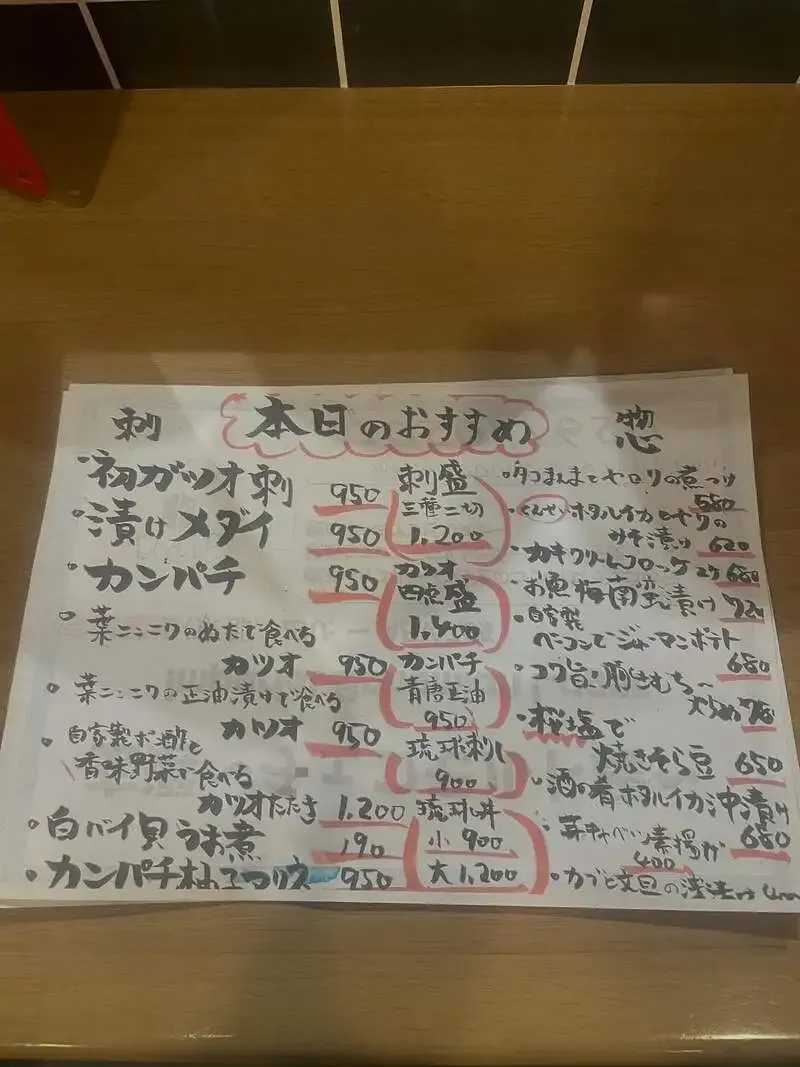 刺
本日のおすすめ
惣
・初ガツオ刺 950
・漬けメダイ 950
・カンパチ 950
・葉にんにくのぬたで食べる
カツオ 950
・葉にんにくの正油漬けで食べる
カツオ 950
・自家製ポン酢と
香味野菜で食べる
カツオたたき 1.200
・白バイ貝うま煮 190
・カンパチ 950
刺盛
三種二切
1.200
カツオ
四点盛
1.400
カンパチ
青唐正油
950
琉球刺し
900
琉球丼
小 900
大 1.200
・タコまんまとヤロリの煮つけ
580
・くんせいホタルイカとセリの
みそ漬け 620
・カキクリームコロッケ 2ケ 680
・お魚梅南蛮漬け 720
・自家製
ベーコンでジャーマンポテト
680
・コク旨豚きもち
・桜塩で
焼きそら豆 650
・酒の肴ホタルイカ沖漬け
680
・芽キャベツ素揚げ
400
・カブと文旦の浅漬け